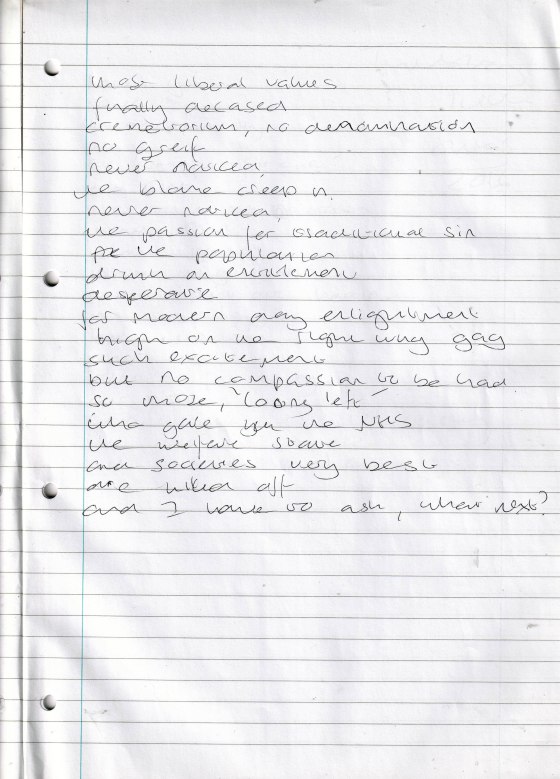 those liberal values
finally decased
crematorium, no denomination
no greif
never noticed,
the blame creep in.
never noticed,
the passion for traditional sin
for the population
drunk on entitlement
desperate
for modern day enlightment
high on the right wing gag
such excitement
but no compassion to be had
so those, "loony left"
who gave you the NHS
the welfare state
and societies very best
are killed off
and I have to ask, what next?